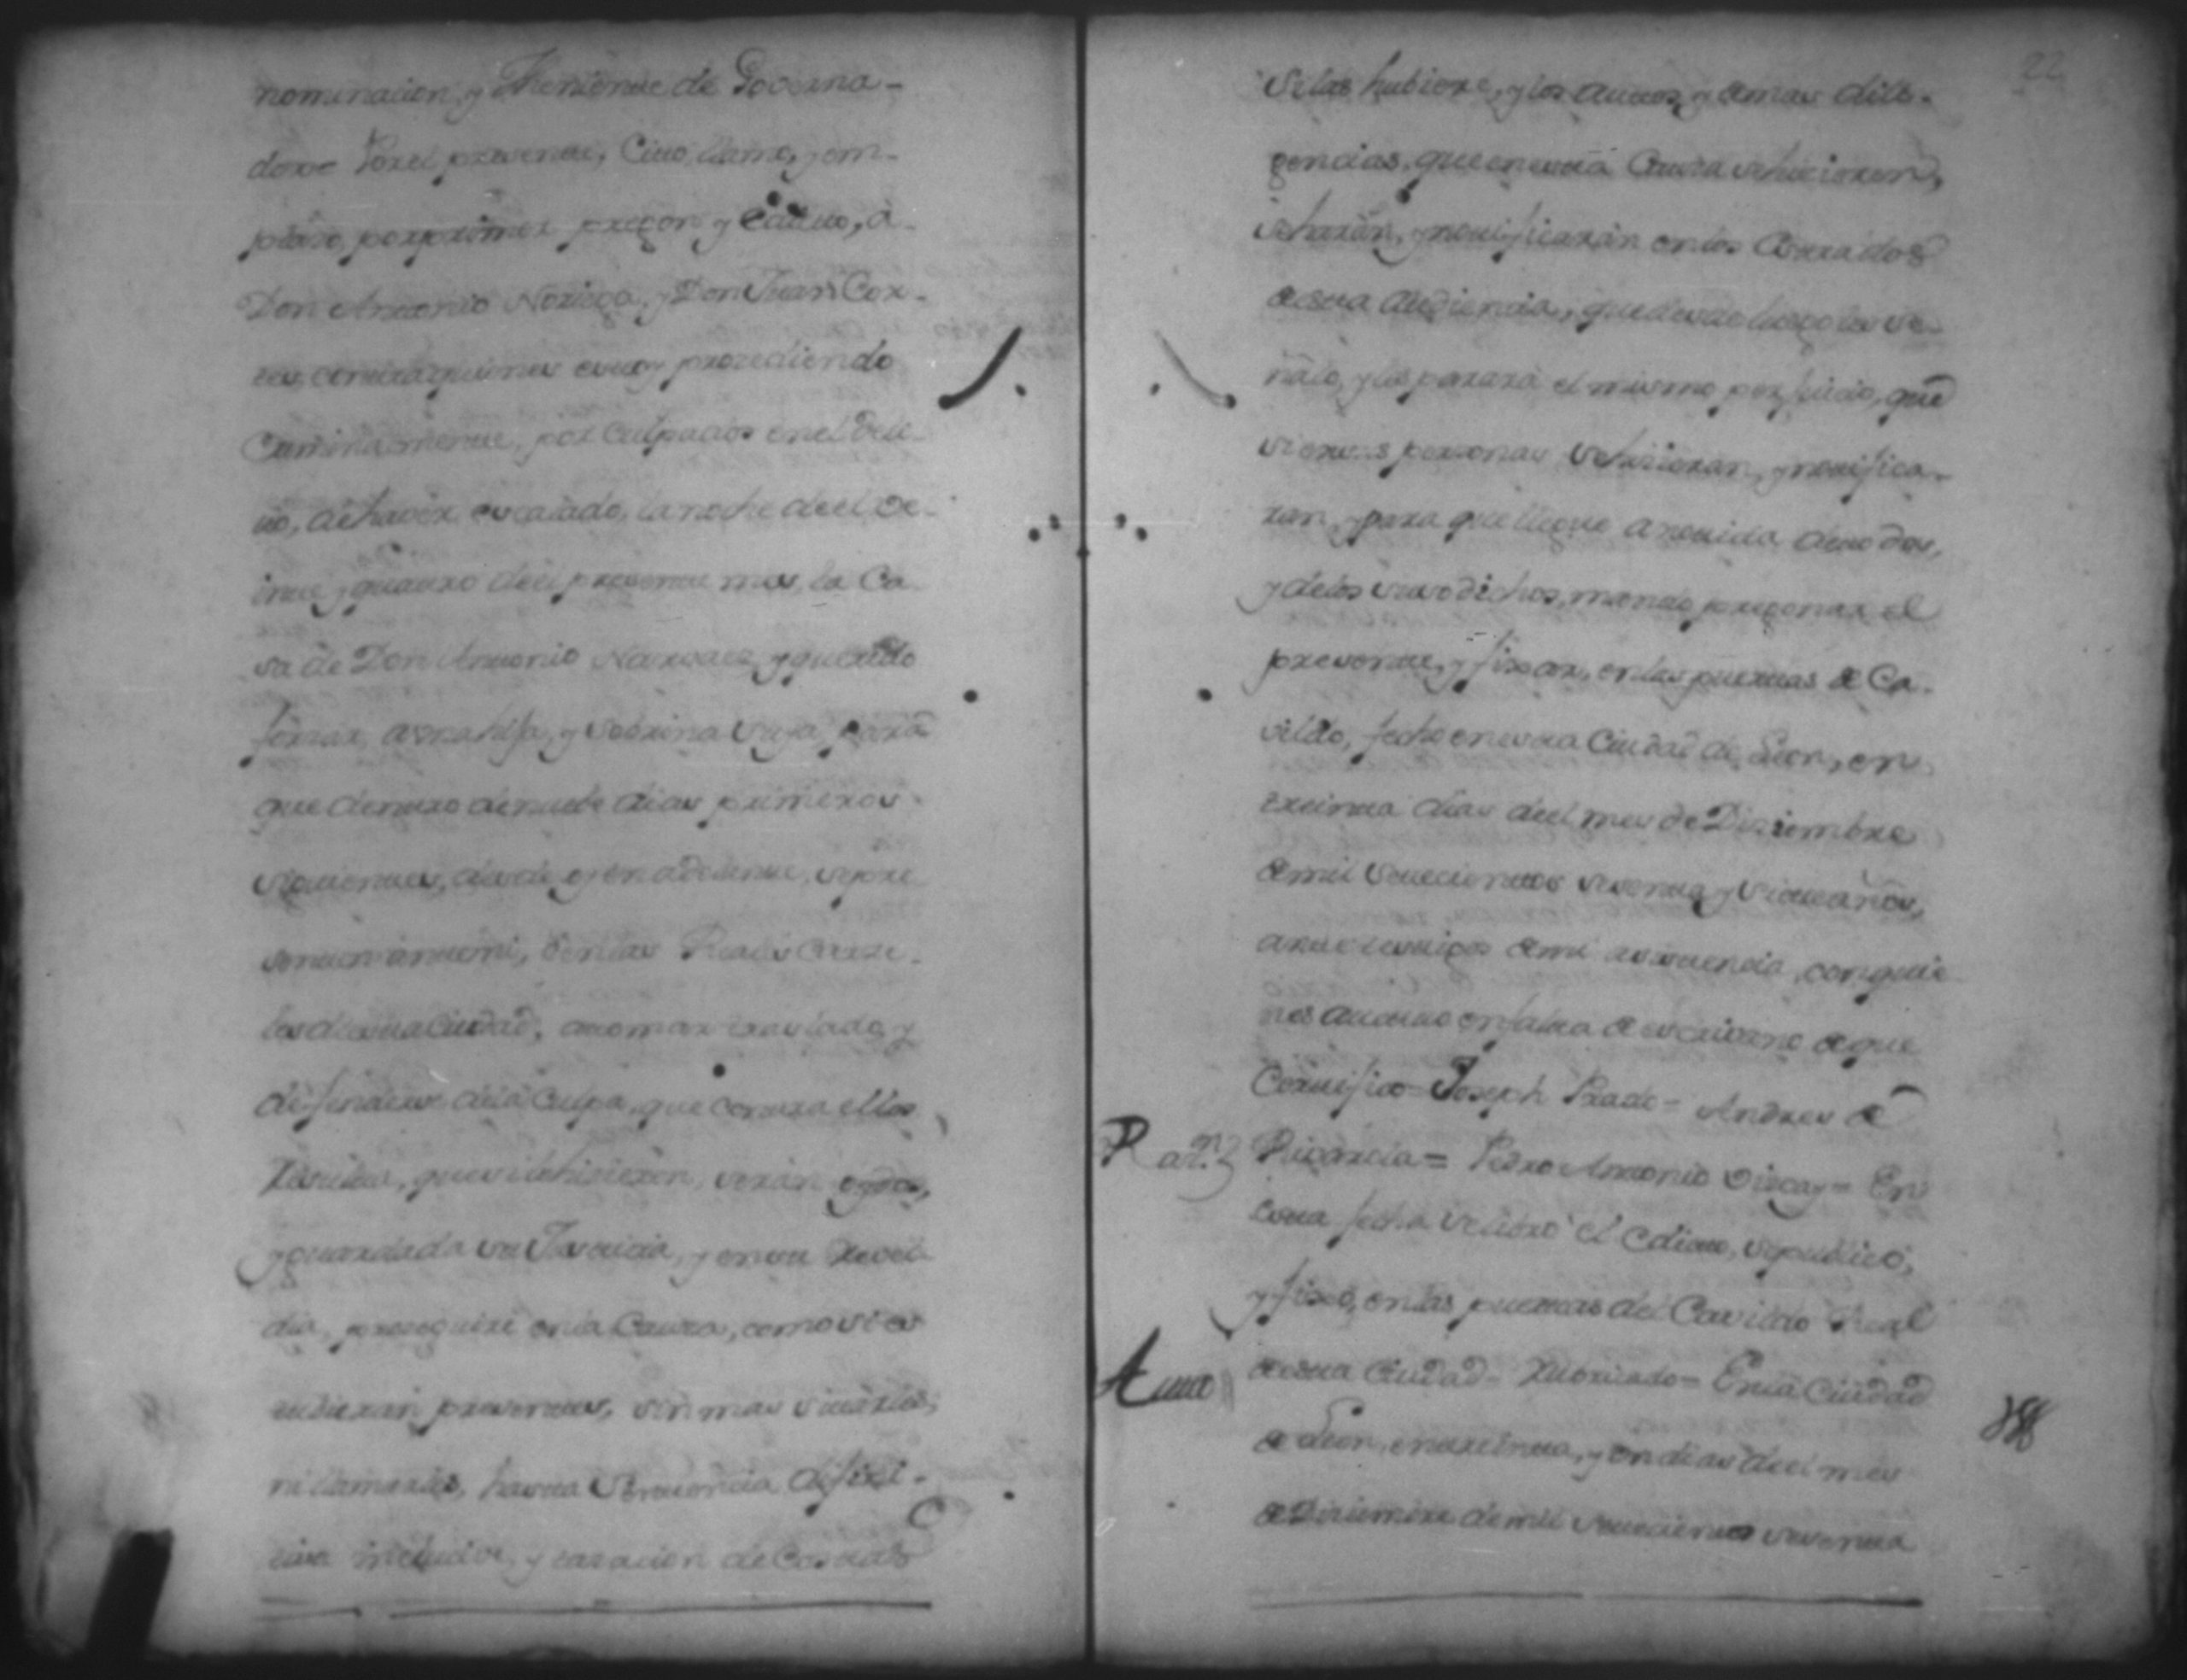 nominacion, y Theniente de Governa-
dor= Por el presente, Cito, llamo, y em-
plazo, por primer pregon y Edicto, a
Don Antonio Noriega, y Don Juan Cor-
tes, contra quienes estoy procediendo
Criminalmente, por Culpados en el deli-
to, de haver escalado, la noche de el ve-
inte y quatro de el presente mes, la Ca-
sa de Don Antonio Narvaez, y querido
forzar, a una hija, y sobrina suya, para
que dentro de nuebe dias primeros
siguientes, desde oy en adelante, se pre
senten ante mi, ô en las Reales Carze-
les de esta Ciudad, a tomar traslado, y
defenderse de la Culpa, que contra ellos
Resulta, que si lo hisieren, seran oydos,
y guardada su Justicia, y en su Revel-
dia, proseguiré en la Causa, como si es
tubieran presentes, sin mas sitarlos,
ni llamarlos, hasta Sentencia difini-
tiva inclusive, y tasacion de Costas
22
Si las hubiere, y los autos, y demas dili-
gencias, que en esta Causa se hicieren,
se harán, y notificarán en los Estrados
de esta Audiencia, que desde luego les se-
ñalo, y les parará el mismo perjuicio, que
si en sus personas se hicieran, y notifica-
ran, y para que llegue a noticia de todos,
y de los suso dichos, mando pregonar el
presente, y fixar, en las puertas de Ca-
vildo, fecho en esta Ciudad de Leon, en
treinta dias de el mes de Diziembre
de mil setecientos sesenta y siete años,
ante testigos de mi asistencia, con quie
nes actuo en falta de escrivano de que
Certifico= Joseph Prado= Andres de
Ra.on Pedro Antonio = En
esta fecha se libró el edicto, se publicó,
y fixó, en las puertas del Cavildo Real
de esta Ciudad= Rubricado= En la Ciudad
Auto
de Leon, en treinta, y un dias de el mes
de Diziembre de mil setecientos sesenta